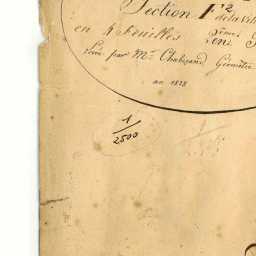 Section F 2 de la Vil
en 4 feuilles 2ème en
Levé par Mr Chabrand Géomètre
an 1828
1/2500